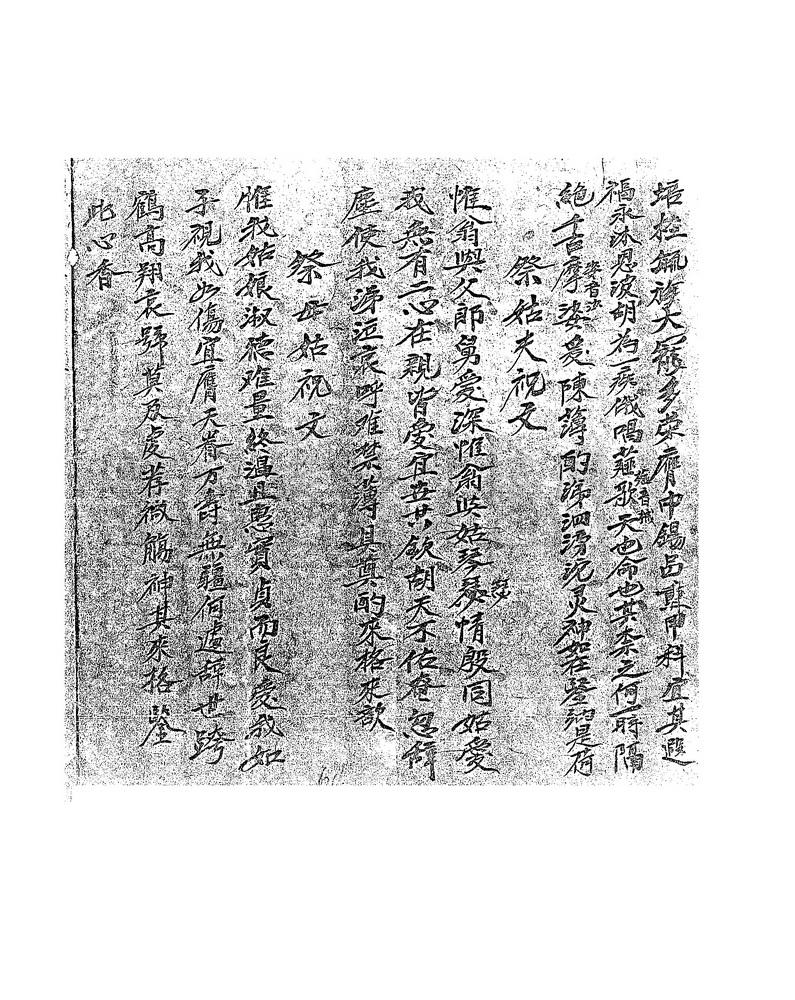 培植瓞綿大㲯多栄膺中錫占龔甲科宜其遐
福永沐恩波胡為一疾俄唱薤歌天也命也其柰之何一時隔
絶千古摩娑爰陳薄酌涕泗滂沱灵神如在鑒此是荷
祭姑夫祝文
惟翁與父郎舅愛深惟翁與姑琴瑟情殷同姑愛
我無有二心在親皆愛宜世共欽胡天不佑奄忽辭
塵使我涕泣哀呼难禁薄具奠酌來格來歆
祭母姑祝文
惟我姑娘淑德难量終溫且惠實貞而良愛我如
子視我如傷宜膺天眷万壽無疆何遽辞世跨
鶴高翔哀號莫及虔荐微觴神其來格鑒
此心香